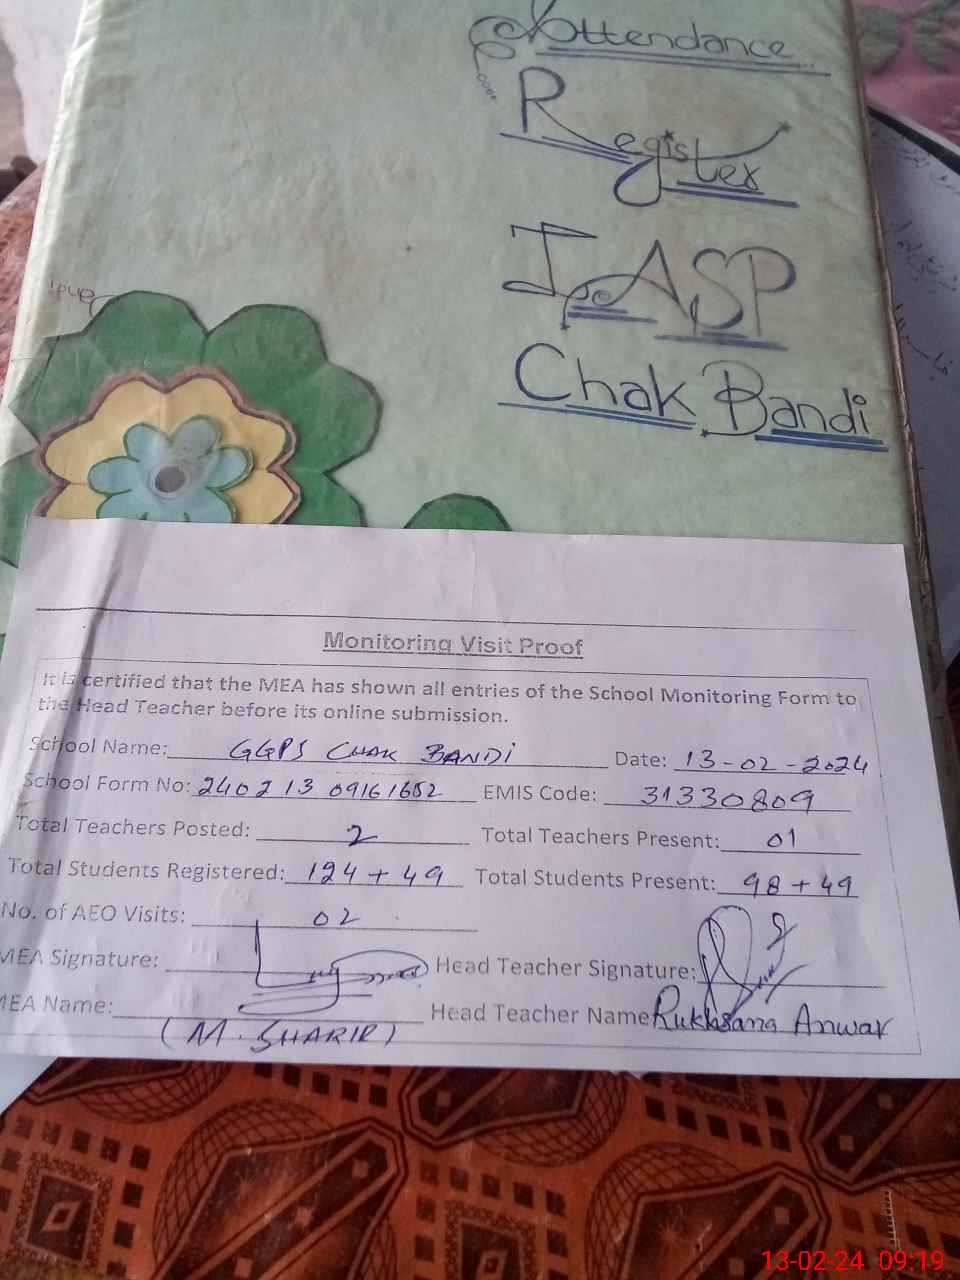 Attendance
Register
IASP
Chak Bandi
Monitoring Visit Proof
It is certified that the MEA has shown all entries of the School Monitoring Form to
the Head Teacher before its online submission.
School Name: GGPS CHAK BANDi Date: 13-02-2024
School Form No: 240213 09161652 EMIS Code: 31330809
Total Teachers Posted: 2 Total Teachers Present: 01
Total Students Registered: 124 + 49 Total Students Present: 98 + 49
No. of AEO Visits: 02
MEA Signature: Head Teacher Signature:
MEA Name: Head Teacher Name Rukhsana Anwar
(M. SHARIR)
13-02-24 09:19